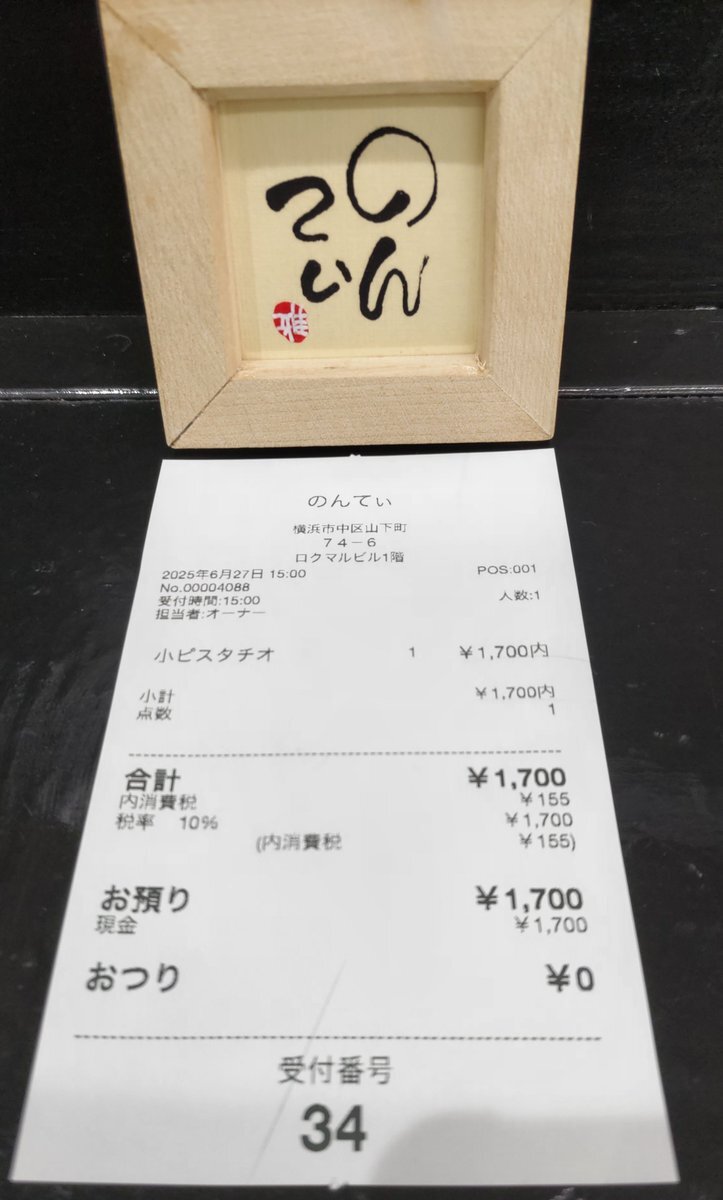 のん
てい
雅
のんてぃ
横浜市中区山下町
74-6
ロクマルビル1階
2025年6月27日 15:00 POS:001
No.00004088
受付時間:15:00 人数:1
担当者:オーナー
小ピスタチオ 1 ¥1,700内
小計 ¥1,700内
点数 1
合計 ¥1,700
内消費税 ¥155
税率 10% ¥1,700
(内消費税 ¥155)
お預り ¥1,700
現金 ¥1,700
おつり ¥0
受付番号
34